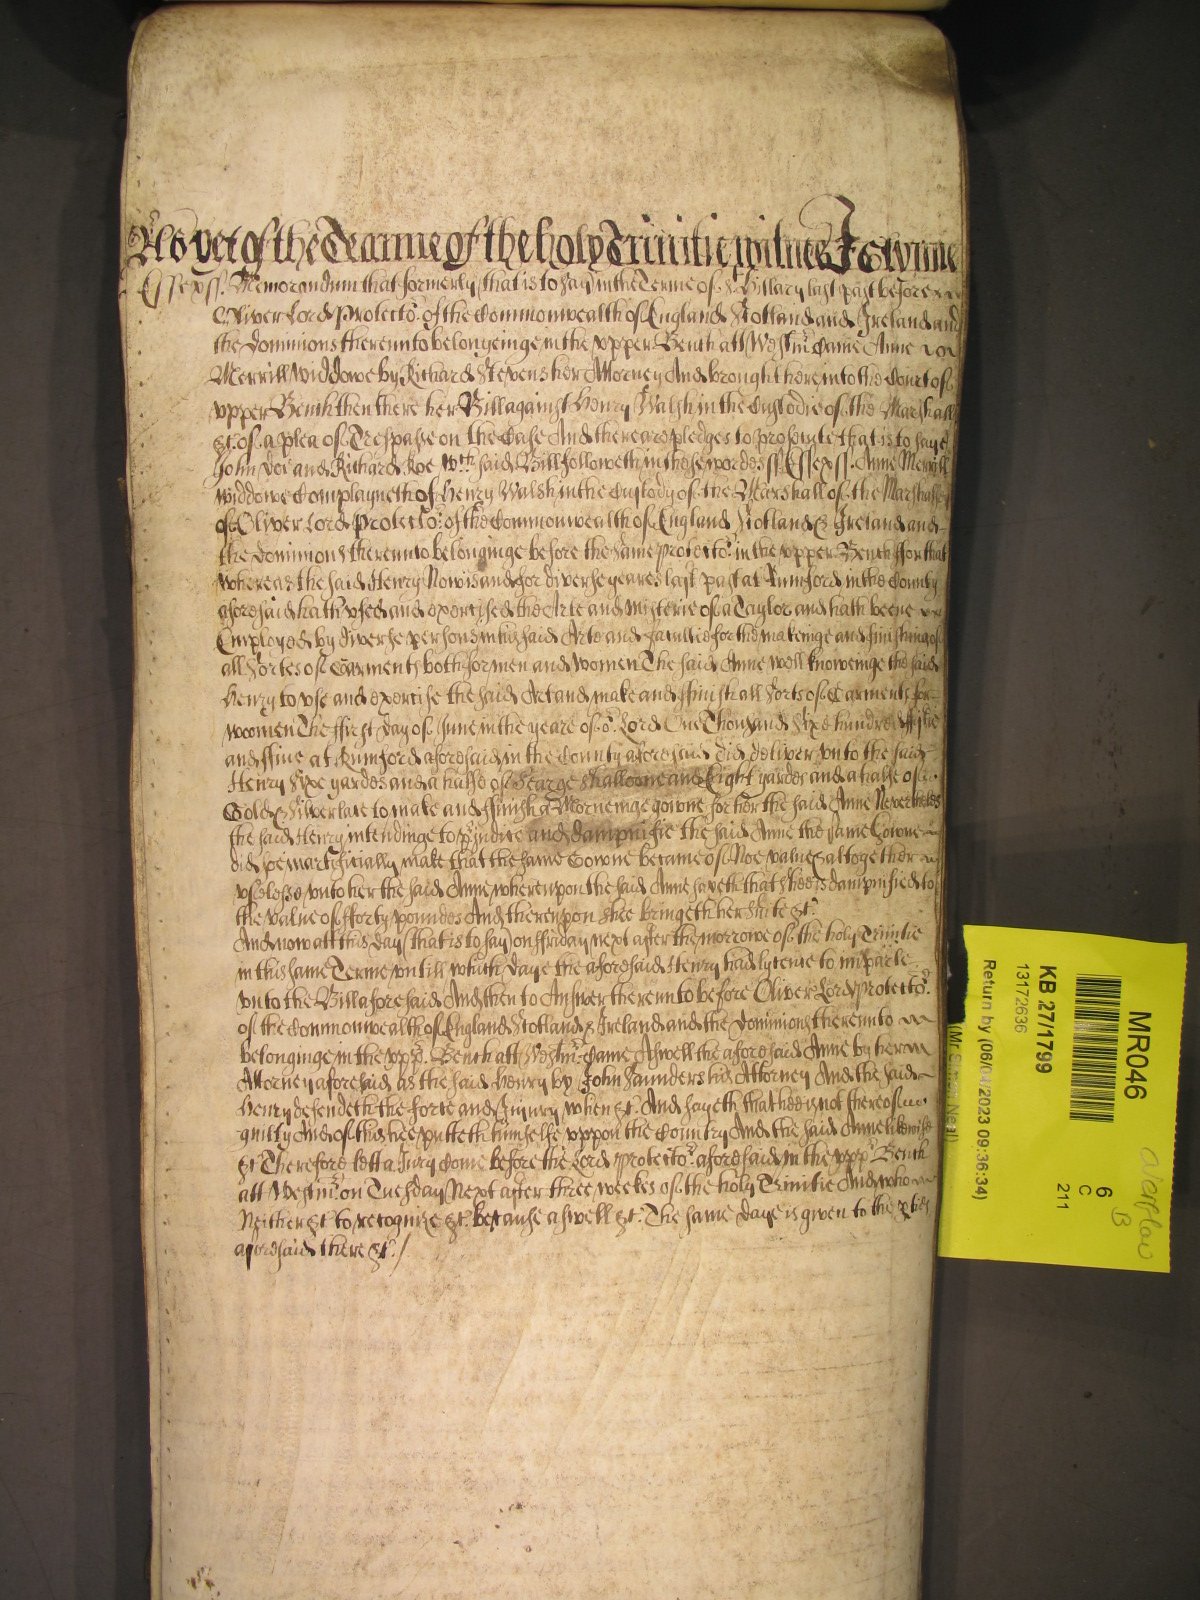 As yet of the Tearme of the holy Trinitie witnes J Glynne
Essex ss. Memorandum that formerly that is to say in the Terme of St Hillary last past before
Oliver Lord Protector of the Commonwealth of England Scotland and Ireland and
the Dominions thereunto belongeinge in the vpper Bench att Westmr Came Anne
Merrill Widdowe by Richard Stevens her Attorney And brought here into the Court of
vpper Bench then there her Bill against Henry Walsh in the Custodie of the Marshall
&c. of a plea of Trespasse on the Case And there are pledges to prosecute that is to saye
John Doe and Richard Roe Wch said Bill followeth in these wordes ss Essex ss. Anne Merrill
Widdowe Complayneth of Henry Walsh in the Custody of the Marshall of the Marshalsey
of Oliver Lord Protector of the Commonwealth of England Scotland & Ireland and
the Dominions thereunto belonginge before the same Protector in the vpper Bench ffor that
whereas the said Henry Now is and for diverse yeares last past at Rumford in the County
aforesaid hath vsed and exercised the Arte and Misterie of a Taylor and hath beene
Employed by diverse persons in his said Arte and facultie for the makeinge and finishing of
all sortes of Garments both for men and women The said Anne well knoweinge the said
Henry to vse and exercise the said Art and make and ffinish all sorts of Garments for
woomen The ffirst day of June in the yeare of or Lord One Thousand Sixe hundred ffiftie
and ffive at Rumford aforesaid in the County aforesaid did deliver vnto the said
Henry Sixe yardes and a halfe of Searge Shalloone and Eight yardes and a halfe of
Gold & Silver lace to make and ffinish a Morneinge gowne for her the said Anne Neverthelesse
the said Henry intendinge to preiudice and dampnifie the said Anne the same Gowne
did soe inartificially make that the same Gowne became of Noe value & altogether
vselesse vnto her the said Anne wherevpon the said Anne sayeth that shee is dampnified to
the value of fforty poundes And therevpon shee bringeth her suite &c.
And now att this day (that is to say) on ffriday next after the morrowe of the holy Trinitie
in this same Terme vntill which daye the aforesaid Henry had lycence to imparle
vnto the Bill aforesaid And then to Answer thereunto before Oliver Lord Protector
of the Commonwealth of England Scotland & Ireland and the Dominions thereunto
belonginge in the vppr. Bench att Westmr. Came Aswell the aforesaid Anne by her
Attorney aforesaid as the said Henry by John Saunders his Attorney And the said
Henry defendeth the force and Iniury when &c. And sayeth that hee is not thereof
guilty And of this hee putteth himselfe vppon the Country And the said Anne likewise
&c Therefore lett a Jury Come before the Lord Protector aforesaid in the vppr Bench
att Westmr. on Tuesday Next after three weekes of the holy Trinitie And who
Neither &c. to recognize &c. because aswell &c. The same daye is given to the pties
aforesaid there &c. /
MR046
6
C
211
KB 27/1799
13172636
Return by (06/04/2023 09:36:34)
overflow
B